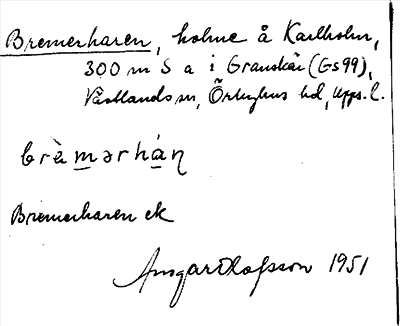 Bremerhaven, holme å Karlholm,
300 m S a i Granskär (Gs 99),
Västlands sn, Örbyhus hd, Upps. l.
brὲmərhàṇ
Bremerhaven ek
Ansgar Olofsson 1951